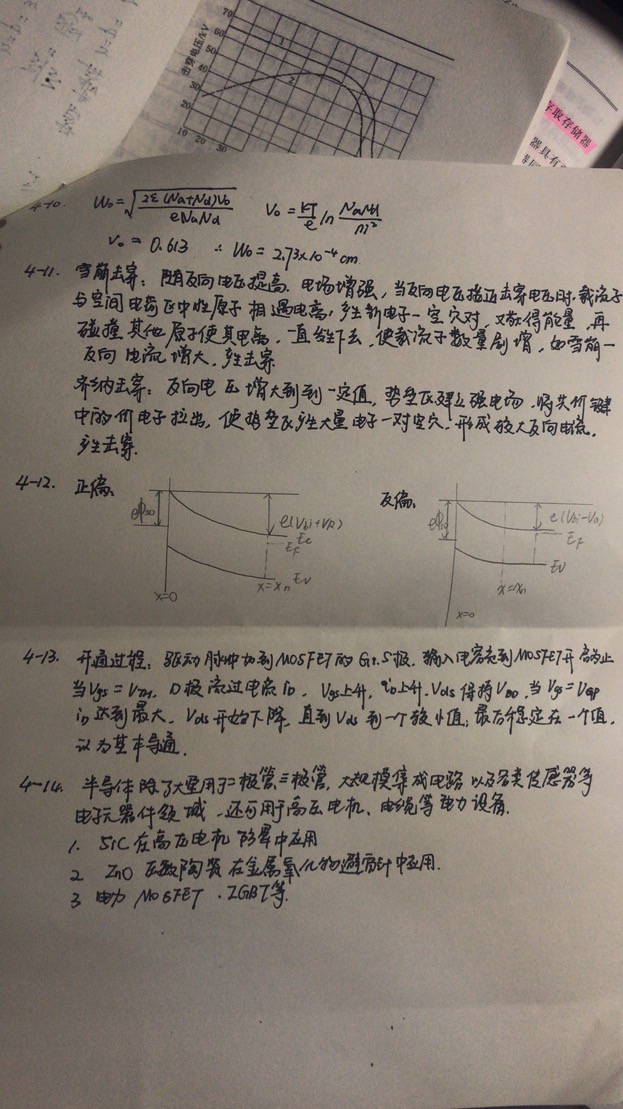 70
60
50
40
30
20
10 20 30
击穿电压/kV
1
2
存取存储器
器具有
4-10. W₀=√(2ε(Na+Nd)V₀/eNaNd) V₀=kT/e ln NaNd/ni²
V₀=0.613 ∴W₀=2.73×10⁻⁴cm
4-11. 雪崩击穿：随反向电压提高，电场增强，当反向电压接近击穿电压时，载流子
与空间电荷区中性原子相遇电离，产生新电子-空穴对，又取得能量，再
碰撞其他原子使其电离，一直发生下去，使载流子数量剧增，如雪崩一
反向电流增大，产生击穿.
齐纳击穿：反向电压增大到到一定值，势垒区建立强电场，将共价键
中的价电子拉出，使势垒区产生大量电子-对空穴，形成较大反向电流，
产生击穿.
4-12. 正偏： 反偏：
eΦ e(Vbi+VR) Ec
EF
EV
x=0 x=xn
eΦ e(Vbi-V₀)
EF
EV
x=xn
x=0
4-13. 开通过程：驱动脉冲加到MOSFET的G、S极，输入电容充到MOSFET开启为止
当Vgs=VTH，D极流过电流iD，Vgs上升，iD上升，Vds保持VDD，当Vgs=Vgp
iD达到最大，Vds开始下降，直到Vds到一个较小值，最后稳定在一个值，
认为基本导通.
4-14. 半导体除了大量用于二极管、三极管，大规模集成电路以及各类传感器等
电子元器件领域，还可用于高压电机、电缆等电力设备.
1. SiC在高压电机防晕中应用
2 ZnO压敏陶瓷在金属氧化物避雷针中应用.
3 电力MOSFET、IGBT等.